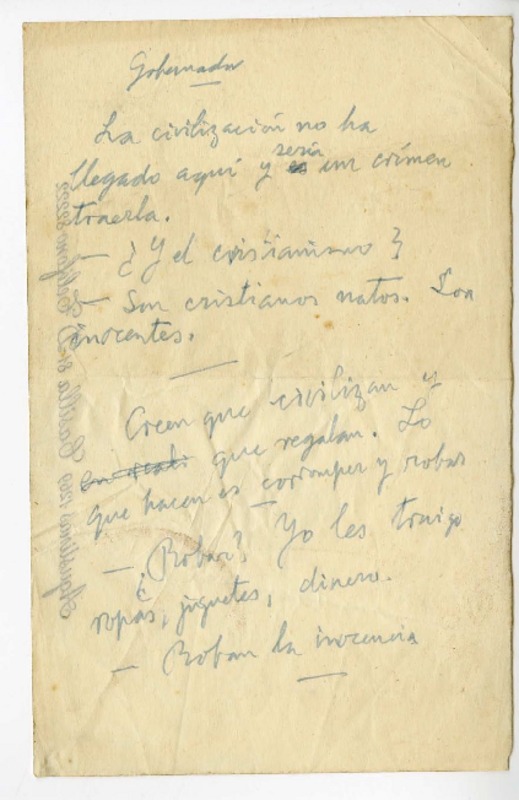 Gobernador
La civilización no ha
llegado aquí y sería un crímen
traerla.
— ¿Y el cristianismo?
— Son cristianos natos. Son
inocentes.
Creen que civilizan y
que regalan. Lo
que hacen es corromper y robar
— ¿Robar? Yo les traigo
ropas, juguetes, dinero.
— Roban la inocencia
Agustinas 1269 Casilla 81-D Teléfono 82222